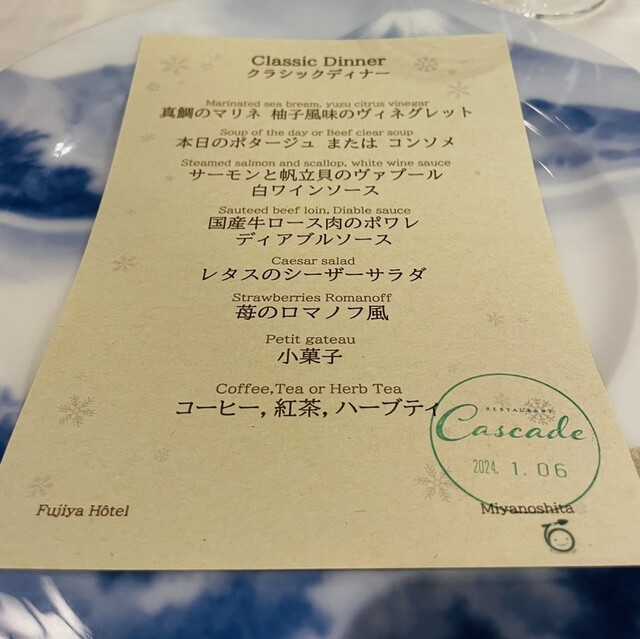 Classic Dinner
クラシックディナー
Marinated sea bream, yuzu citrus vinegar
真鯛のマリネ 柚子風味のヴィネグレット
Soup of the day or Beef clear soup
本日のポタージュ または コンソメ
Steamed salmon and scallop, white wine sauce
サーモンと帆立貝のヴァプール
白ワインソース
Sauteed beef loin, Diable sauce
国産牛ロース肉のポワレ
ディアブルソース
Caesar salad
レタスのシーザーサラダ
Strawberries Romanoff
苺のロマノフ風
Petit gateau
小菓子
Coffee,Tea or Herb Tea
コーヒー, 紅茶, ハーブティ
RESTAURANT
Cascade
2024. 1. 06
Fujiya Hôtel
Miyanoshita